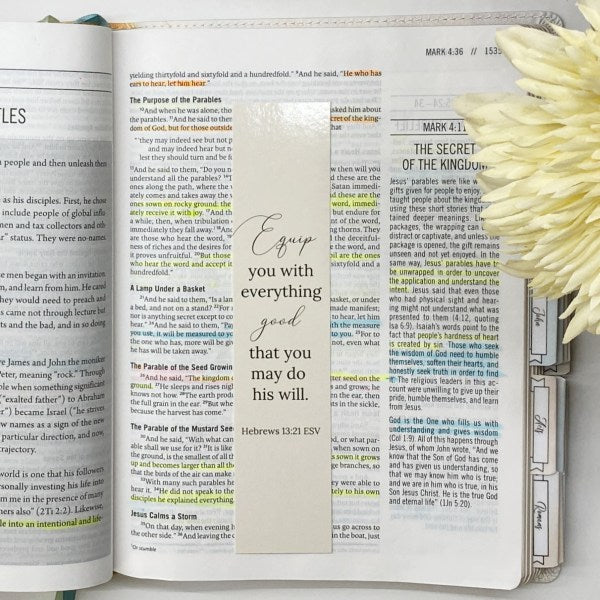 MARK 4:36 // 153
TLES
e people and then unleash them
as his disciples. First, he chose
include people of global influ
men and tax collectors and oth-
ar" status. They were no-names.
men began with an invitation.
n, and learn from him. He cared
they would need to preach and
came not through lecture but
ts and the bad, and in so doing
re James and John the moniker
Peter, meaning "rock." Through
le when something significant
("exalted father") to Abraham
") became Israel ("he strives
names as a sign of the new
particular direction, and now,
trajectory.
world is one that his followers
ersonally investing his life into
m me in the presence of many
ners also" (2Ti 2:2). Likewise,
le into an intentional and life-
yielding thirtyfold and sixtyfold and a hundredfold." And he said, "He who has
ears to hear, let him hear."
The Purpose of the Parables
And when he was alone, tho
asked him about
the parables. And he said to them
secret of the king-
dom of God, but for those outside
that
"'they may indeed see but not p
and may indeed hear but n
lest they should turn and be f
And he said to them, "Do you n
w then will you
understand all the parables?
these are the
ones along the path, where the w
Satan immedi-
ately comes and takes away the
d these are the
ones sown on rocky ground: the
word, immedi-
ately receive it with joy. And th
but endure for
a while; then, when tribulation
of the word,
immediately they fall away. And o
ng thorns. They
are those who hear the word,
the deceitful-
ness of riches and the desires for
word, and
it proves unfruitful. But those
oil are the ones
who hear the word and accept it
sixtyfold and a
hundredfold."
A Lamp Under a Basket
And he said to them, "Is a lam
basket, or under
a bed, and not on a stand?
made manifest;
nor is anything secret except to co
to hear, let him
hear." And he said to them, "Pay
the measure
you use, it will be measured to you
For to
the one who has, more will be giv
not, even what
he has will be taken away."
The Parable of the Seed Growin
And he said, "The kingdom o
tter seed on the
ground. He sleeps and rises nigh
grows; he
knows not how. The earth produ
then the ear, then
the full grain in the ear. But whe
the sickle,
because the harvest has come."
The Parable of the Mustard See
And he said, "With what can
d, or what par-
able shall we use for it? It is like
when sown on
the ground, is the smallest of all th
sown it grows
up and becomes larger than all the
ge branches, so
that the birds of the air can make
With many such parables he
were able to
hear it. He did not speak to the
ately to his own
disciples he explained everything.
Jesus Calms a Storm
On that day, when evening h
us go across to
the other side." And leaving the c
the boat, just
Or stumble
Equip
you with
everything
good
that you
may do
his will.
Hebrews 13:21 ESV
MARK 4:11
THE SECRET
OF THE KINGDOM
Jesus' parables were like w
gifts given for people to enjoy
taught people about the kingdo
using these short stories that
tained deeper meaning. Lik
packages, the wrapping can b
distract or captivate, and unless the
package is opened, the gift remains
unseen and not yet enjoyed. In the
same way, Jesus' parables have to
be unwrapped in order to uncover
the application and understand the
intent. Jesus said that even those
who had physical sight and hear-
ing might not understand what was
presented to them (4:12, quoting
Isa 6:9). Isaiah's words point to the
fact that people's hardness of heart
is created by sin. Those who seek
the wisdom of God need to humble
themselves, soften their hearts, and
honestly seek truth in order to find
it. The religious leaders in this ac-
count were unwilling to give up their
pride, humble themselves, and learn
from Jesus.
God is the One who fills us with
understanding and gives wisdom
(Col 1:9). All of this happens through
Jesus, of whom John wrote, "And we
know that the Son of God has come
and has given us understanding, so
that we may know him who is true;
and we are in him who is true, in his
Son Jesus Christ. He is the true God
and eternal life" (1Jn 5:20).
John
Acts
Romans